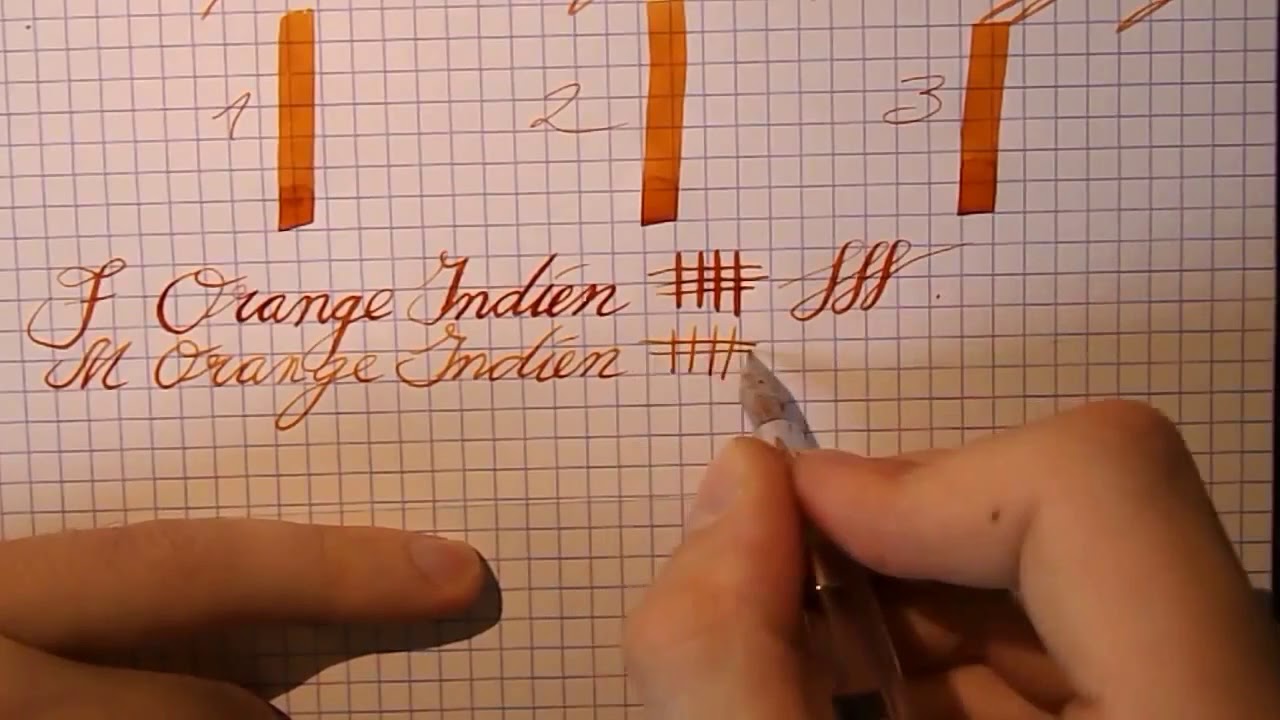 1 2 3
F Orange Indien fff
M Orange Indien